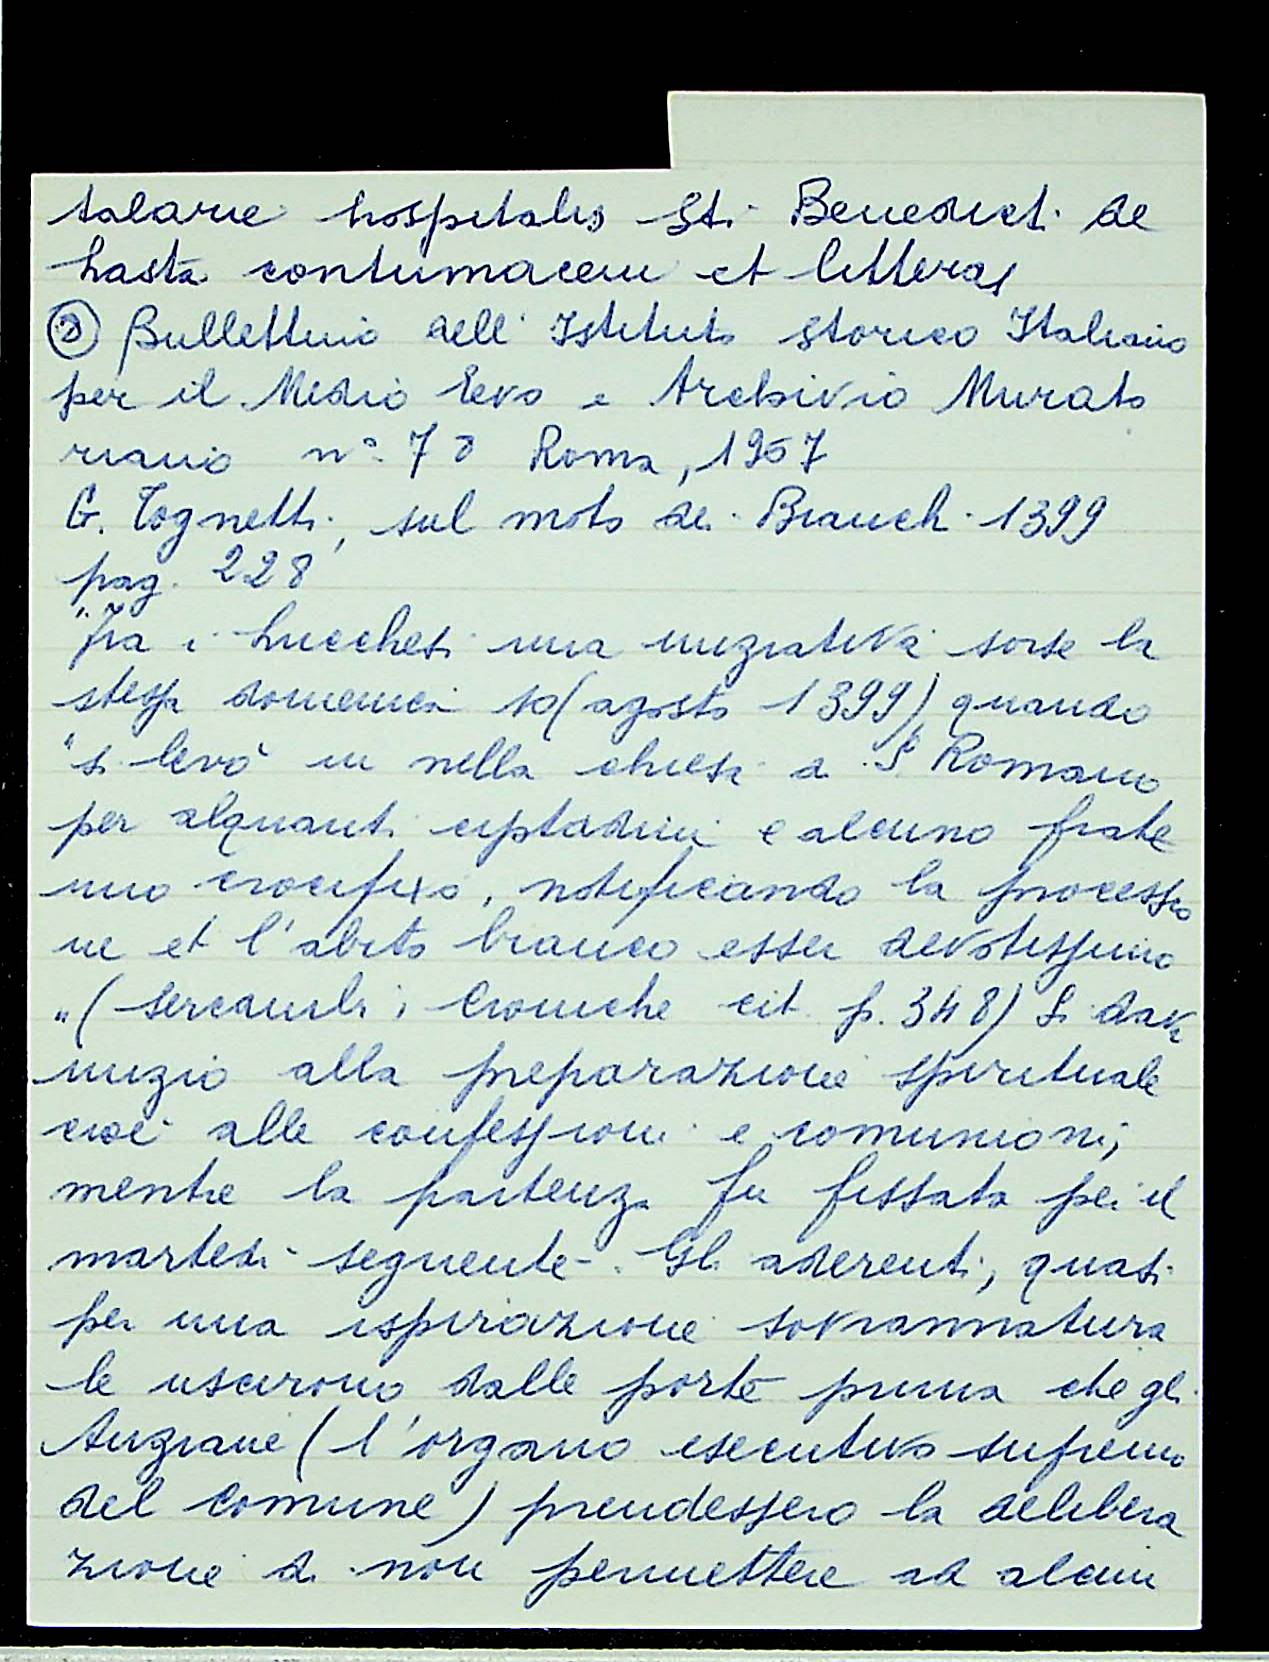 talarie hospitalis Sti. Benedicti de
hasta contumaceu et litteras
② Bullettino dell'Istituto Storico Italiano
per il Medio Evo e Archivio Murato
riano n° 78 Roma, 1967
G. Tognetti, sul moto dei Bianchi 1399
pag. 228
"Fra i Lucchesi una iniziativa sorse la
stessa domenica 10 (agosto 1399) quando
"si levò in nella chiesa di S. Romano
per alquanti ciptadini e alcuno frate
uno crocifixo, notificando la processio
ne et l'abito bianco esser devotissimo
"(Sercambi, Croniche cit. p. 348) Si dava
inizio alla preparazione spirituale
cioè alle confessioni e comunioni;
mentre la partenza fu fissata per il
martedì seguente. Gli aderenti, quasi
per una ispirazione sovrannatura
le uscirono dalle porte prima che gli
Anziani (l'organo esecutivo supremo
del Comune) prendessero la delibera
zione di non permettere ad alcun